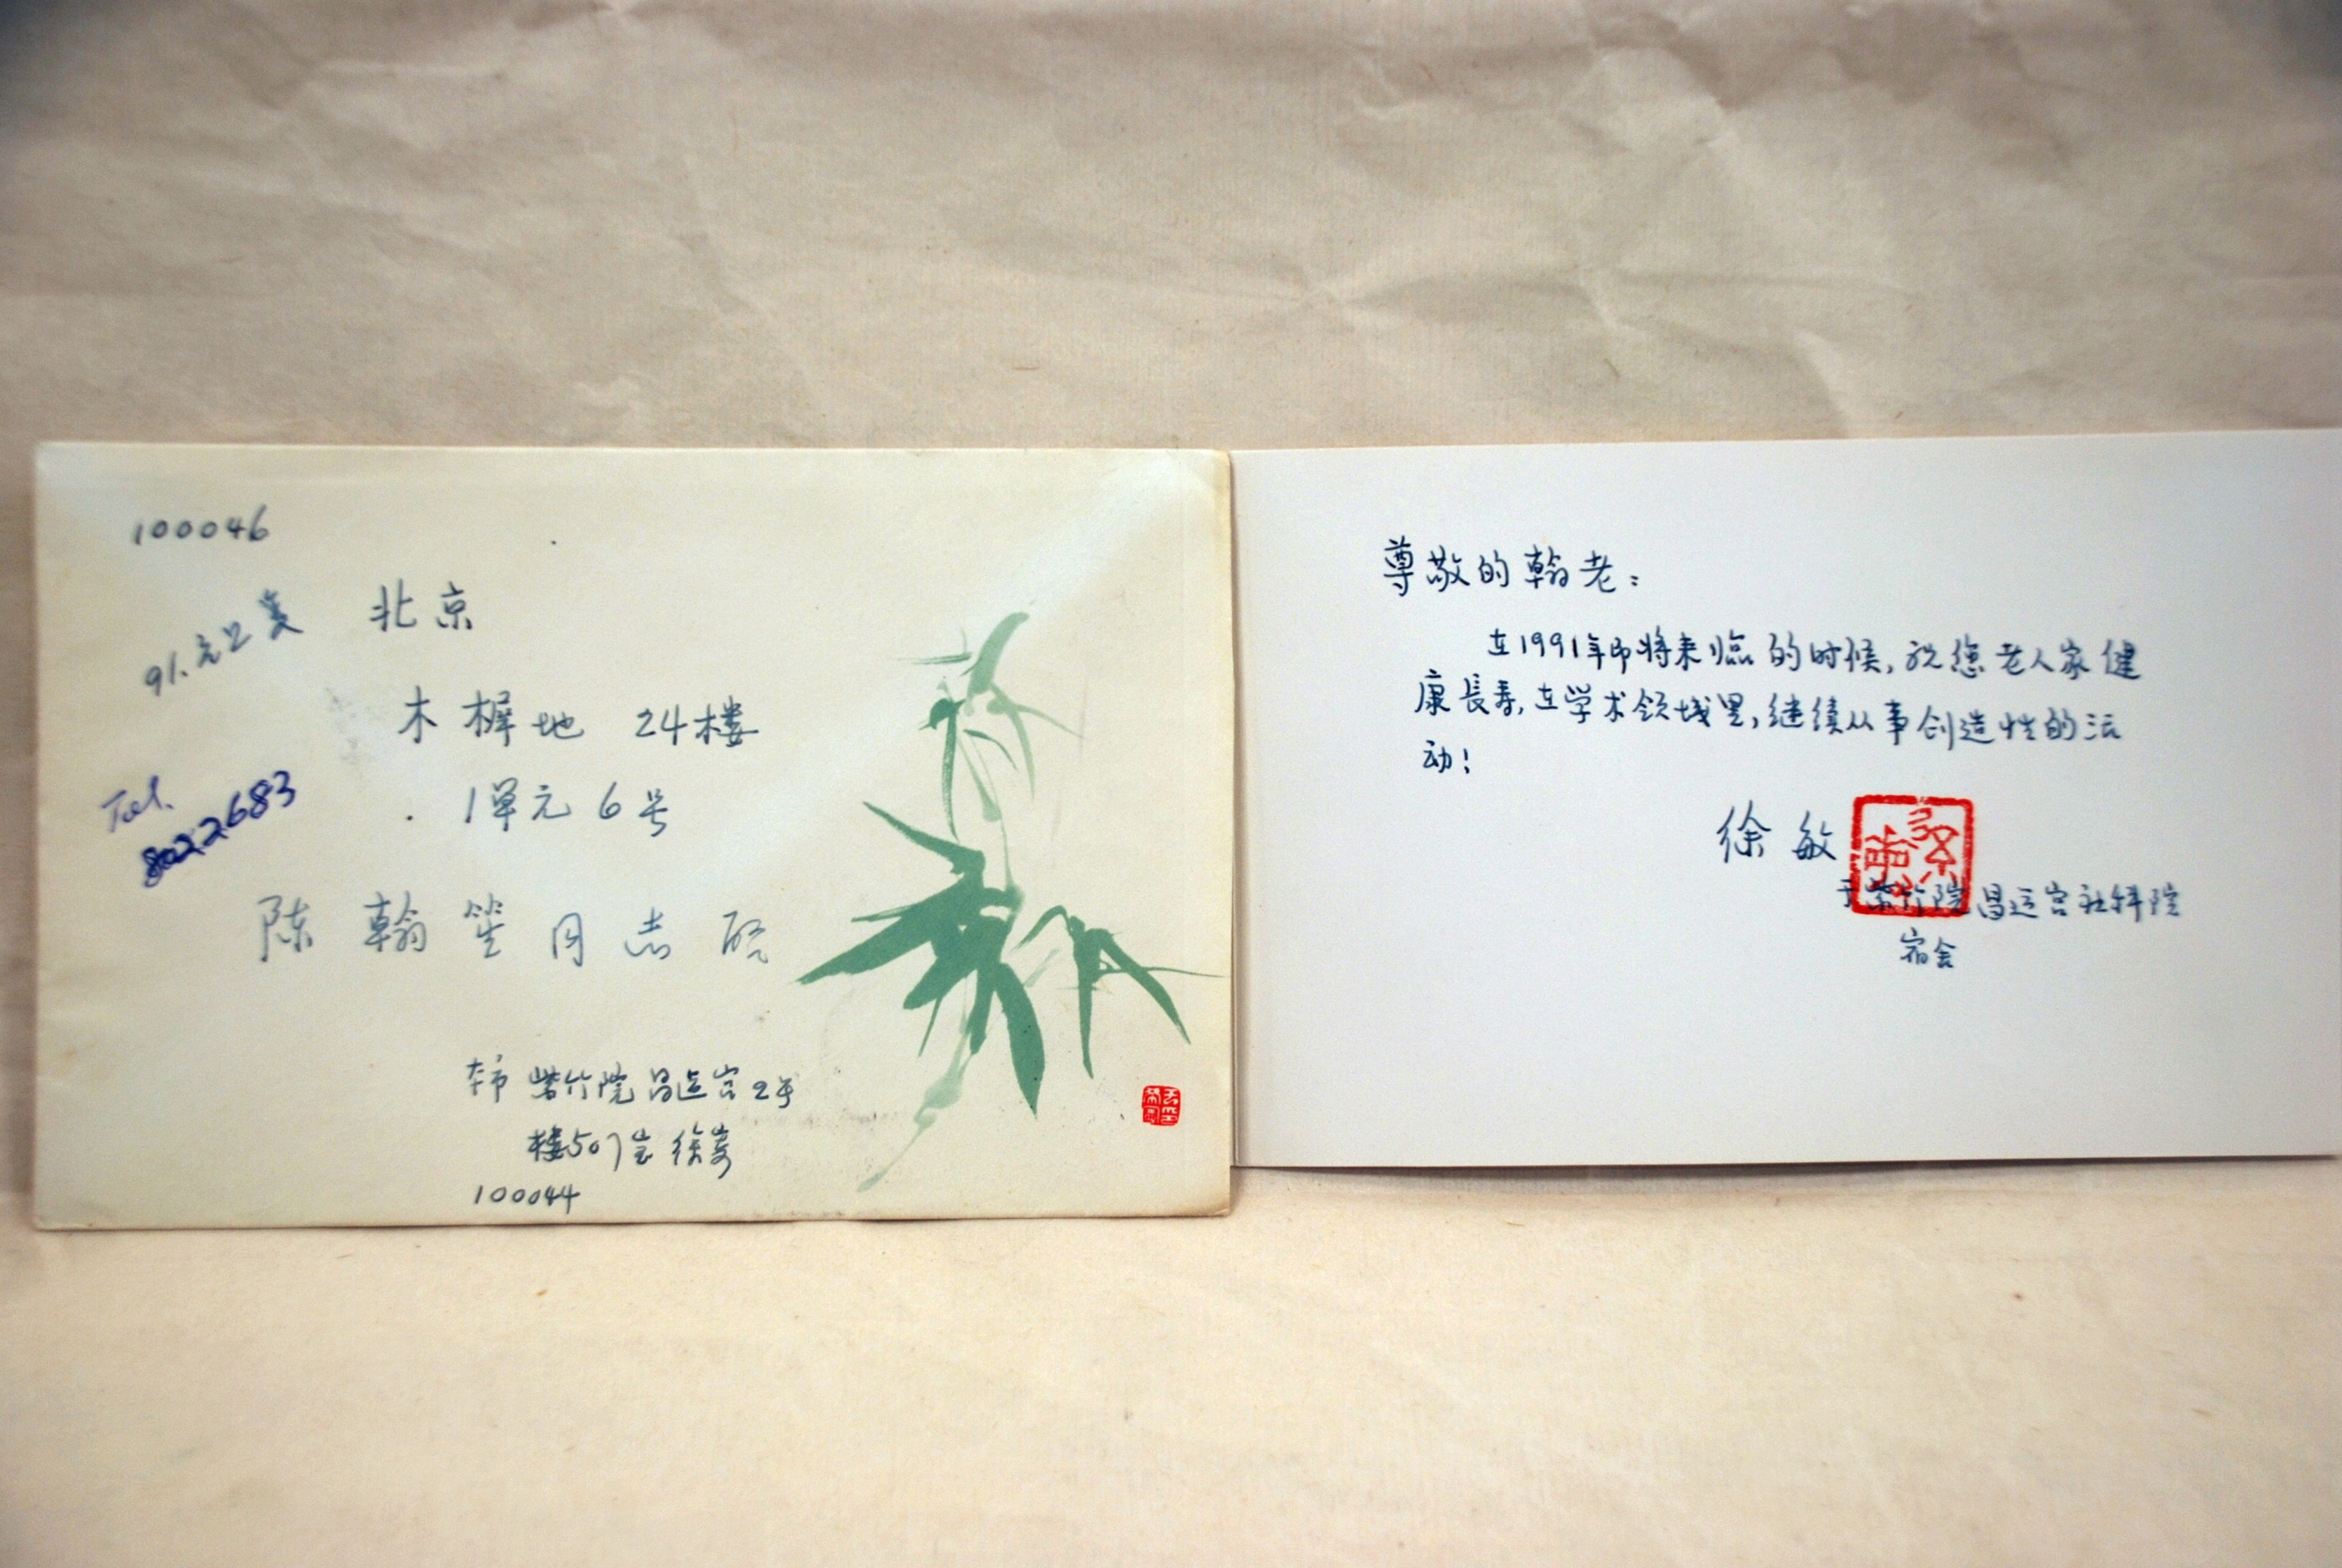 100046
北京
91.元旦
木樨地 24楼
1单元 6号
Tel.
8022683
陈翰笙同志启
本市 紫竹院昌运宫2号
楼507室 徐寄
100044
尊敬的翰老:
在1991年即将来临的时候,祝您老人家健
康長寿,在学术领域里,继续从事创造性的活
动!
徐敏
于紫竹院昌运宫社科院
宿舍